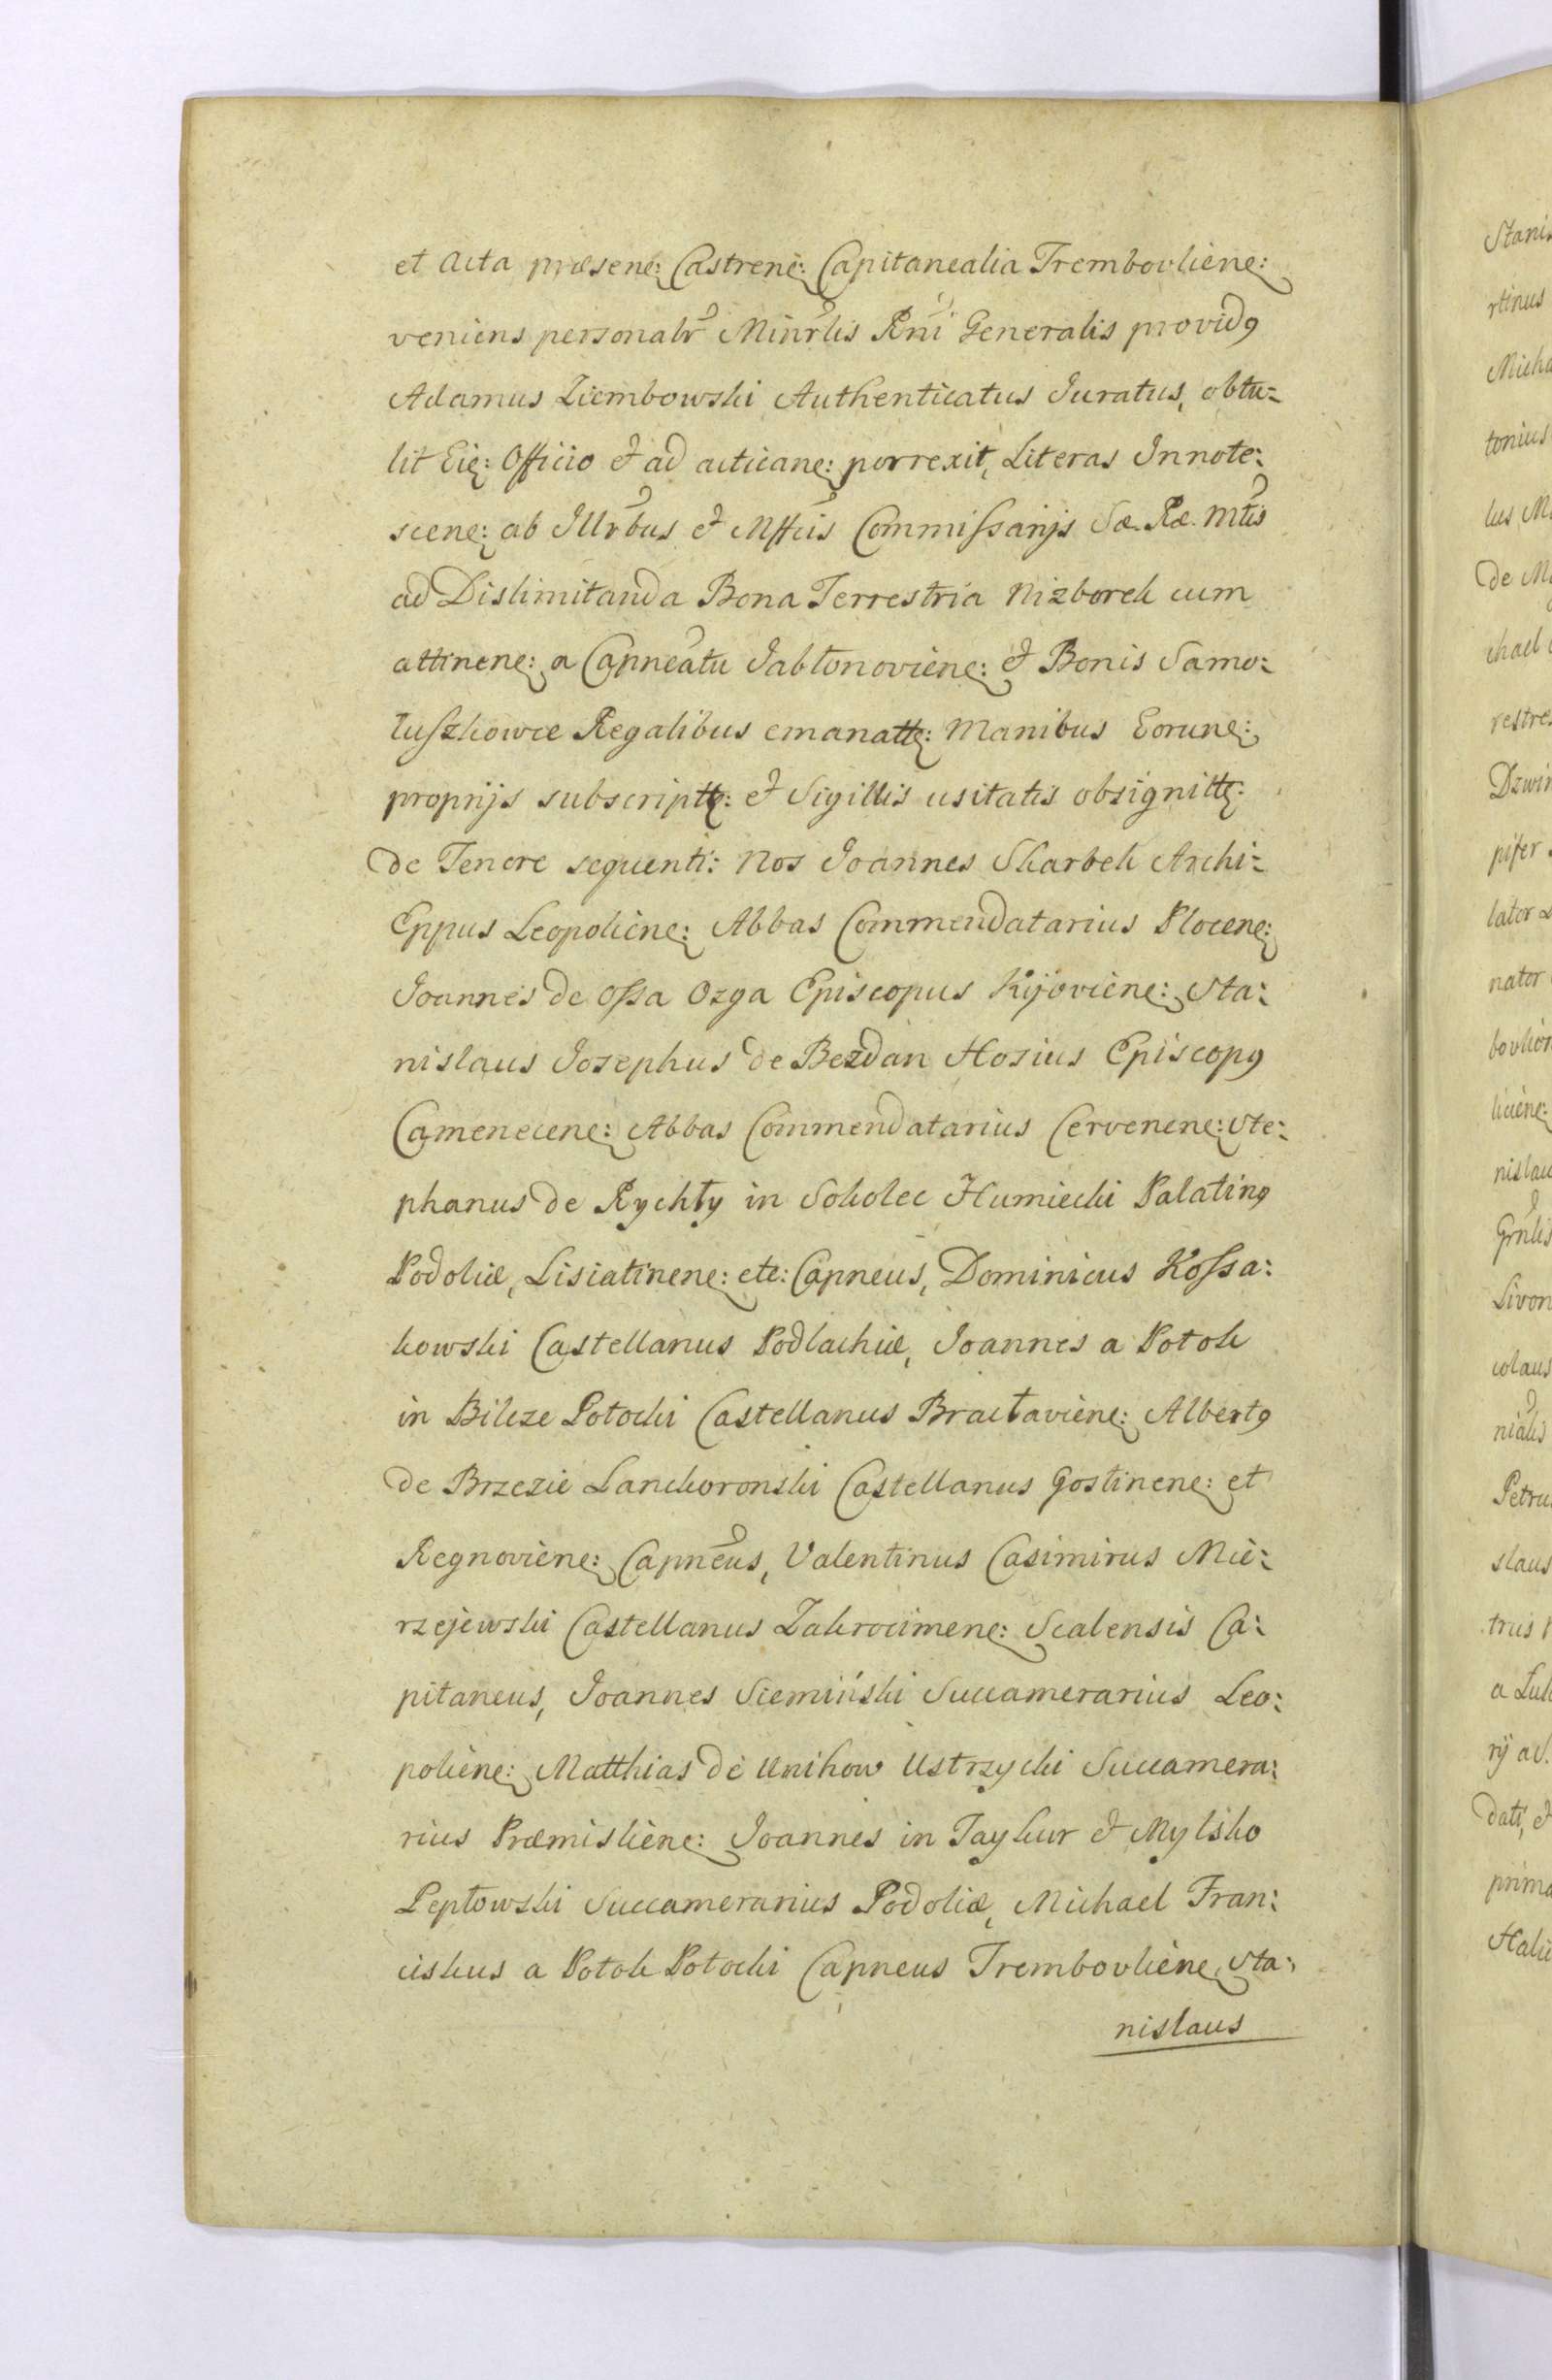 et Acta præsenꝫ: Castrenꝫ: Capitanealia Tremboulienꝫ:
veniens personalr Minrlis Rni Generalis providꝰ
Adamus Ziembowski Authenticatus Juratus, obtu-
lit Eiꝫ: Officio et ad acticanꝫ: porrexit, Literas Innote:
scenꝫ: ab Illrbus et Mffcis Commissarijs Sæ. Ræ. Mtis
ad Dislimitanda Bona Terrestria Nizborek cum
attinenꝫ: a Capneatu Jabłonovienꝫ: et Bonis Samo:
łuszkowce Regalibus emanattꝫ: Manibus Eorunꝫ:
proprijs subscripttꝫ: et Sigillis usitatis obsignittꝫ:
de Tenore sequenti: Nos Joannes Skarbek Archi-
Eppus Leopolienꝫ: Abbas Commendatarius Plocenꝫ:
Joannes de Ossa Ozga Episcopus Kijovienꝫ: Sta:
nislaus Josephus de Bezdan Hosius Episcopꝰ
Camenecenꝫ: Abbas Commendatarius Cervenenꝫ: Ste:
phanus de Rychty in Sokolec Humiecki Palatinꝰ
Podoliæ, Lisiatinenꝫ: etc: Capneus, Dominicus Kossa:
kowski Castellanus Podlachiæ, Joannes a Potok
in Bilcze Potocki Castellanus Bracłavienꝫ: Albertꝰ
de Brzezie Lanckoronski Castellanus Gostinenꝫ: et
Regnovienꝫ: Capneus, Valentinus Casimirus Mie:
rzejewski Castellanus Zakrocimenꝫ: Scalensis Ca:
pitaneus, Joannes Siemiński Succamerarius Leo:
polienꝫ: Matthias de Unihow Ustrzycki Succamera:
rius Præmislienꝫ: Joannes in Taykur et Mylsko
Pepłowski Succamerarius Podoliæ, Michael Fran:
ciskus a Potok Potocki Capneus Tremboulienꝫ, Sta:
nislaus
Stani
rtinus
Micha
tonius
lus M
de M
chael
restres
Dzwin
pifer
lator
nator
boulien
licienꝫ:
nislau
Grnlis
Livon
colaus
nialis
Petru
slaus
trus
a Łuk
rij ad
dati, et
prima
Halic